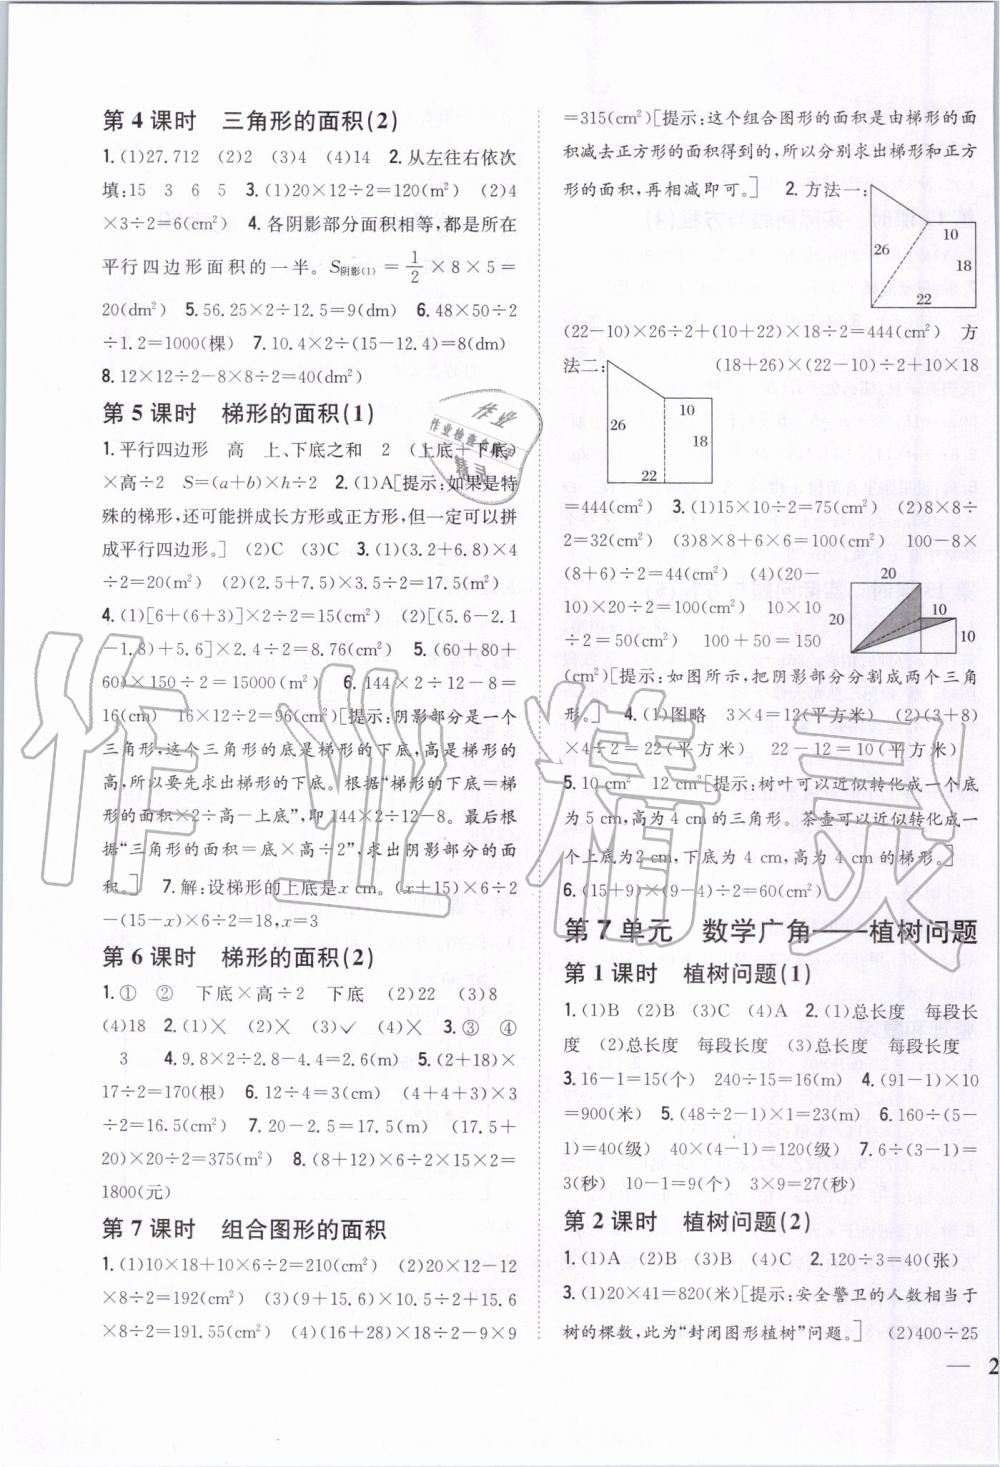 第4课时　三角形的面积(2)
1.(1)27.712　(2)2　(3)4　(4)14　2.从左往右依次
填:15　3　6　5　3.(1)20×12÷2=120(m²)　(2)4
×3÷2=6(cm²)　4.各阴影部分面积相等,都是所在
平行四边形面积的一半。S阴影(1)=1/2×8×5=
20(dm²)　5.56.25×2÷12.5=9(dm)　6.48×50÷2
÷1.2=1000(棵)　7.10.4×2÷(15-12.4)=8(dm)
8.12×12÷2-8×8÷2=40(dm²)
第5课时　梯形的面积(1)
1.平行四边形　高　上、下底之和　2　(上底+下底)
×高÷2　S=(a+b)×h÷2　2.(1)A[提示:如果是特
殊的梯形,还可能拼成长方形或正方形,但一定可以拼
成平行四边形。]　(2)C　(3)C　3.(1)(3.2+6.8)×4
÷2=20(m²)　(2)(2.5+7.5)×3.5÷2=17.5(m²)
4.(1)[6+(6+3)]×2÷2=15(cm²)　(2)[(5.6-2.1
-1.8)+5.6]×2.4÷2=8.76(cm²)　5.(60+80+
60)×150÷2=15000(m²)　6.144×2÷12-8=
16(cm)　16×12÷2=96(cm²)[提示:阴影部分是一个
三角形,这个三角形的底是梯形的下底,高是梯形的
高,所以要先求出梯形的下底。根据“梯形的下底=梯
形的面积×2÷高-上底”,即144×2÷12-8。最后根
据“三角形的面积=底×高÷2”,求出阴影部分的面
积。]　7.解:设梯形的上底是x cm。(x+15)×6÷2
-(15-x)×6÷2=18,x=3
第6课时　梯形的面积(2)
1.①　②　下底×高÷2　下底　(2)22　(3)8
(4)18　2.(1)×　(2)×　(3)✓　(4)×　3.③　④
3　4.9.8×2÷2.8-4.4=2.6(m)　5.(2+18)×
17÷2=170(根)　6.12÷4=3(cm)　(4+4+3)×3
÷2=16.5(cm²)　7.20-2.5=17.5(m)　(17.5+
20)×20÷2=375(m²)　8.(8+12)×6÷2×15×2=
1800(元)
第7课时　组合图形的面积
1.(1)10×18+10×6÷2=210(cm²)　(2)20×12-12
×8÷2=192(cm²)　(3)(9+15.6)×10.5÷2+15.6
×8÷2=191.55(cm²)　(4)(16+28)×18÷2-9×9
=315(cm²)[提示:这个组合图形的面积是由梯形的面
积减去正方形的面积得到的,所以分别求出梯形和正方
形的面积,再相减即可。]　2.方法一:
10
26
18
22
(22-10)×26÷2+(10+22)×18÷2=444(cm²)　方
法二:　(18+26)×(22-10)÷2+10×18
10
26
18
22
=444(cm²)　3.(1)15×10÷2=75(cm²)　(2)8×8÷
2=32(cm²)　(3)8×8+6×6=100(cm²)　100-8×
(8+6)÷2=44(cm²)　(4)(20-
10)×20÷2=100(cm²)　10×10
÷2=50(cm²)　100+50=150
20
20
10
10
(cm²)[提示:如图所示,把阴影部分分割成两个三角
形。]　4.(1)图略　3×4=12(平方米)　(2)(3+8)
×4÷2=22(平方米)　22-12=10(平方米)
5.10 cm²　12 cm²[提示:树叶可以近似转化成一个底
为5 cm,高为4 cm的三角形。茶壶可以近似转化成一
个上底为2 cm,下底为4 cm,高为4 cm的梯形。]
6.(15+9)×(9-4)÷2=60(cm²)
第7单元　数学广角——植树问题
第1课时　植树问题(1)
1.(1)B　(2)B　(3)C　(4)A　2.(1)总长度　每段长
度　(2)总长度　每段长度　(3)总长度　每段长度
3.16-1=15(个)　240÷15=16(m)　4.(91-1)×10
=900(米)　5.(48÷2-1)×1=23(m)　6.160÷(5-
1)=40(级)　40×(4-1)=120(级)　7.6÷(3-1)=
3(秒)　10-1=9(个)　3×9=27(秒)
第2课时　植树问题(2)
1.(1)A　(2)B　(3)B　(4)C　2.120÷3=40(张)
3.(1)20×41=820(米)[提示:安全警卫的人数相当于
树的棵数,此为“封闭图形植树”问题。]　(2)400÷25
— 2
作业精灵
作业
作业检查
精灵